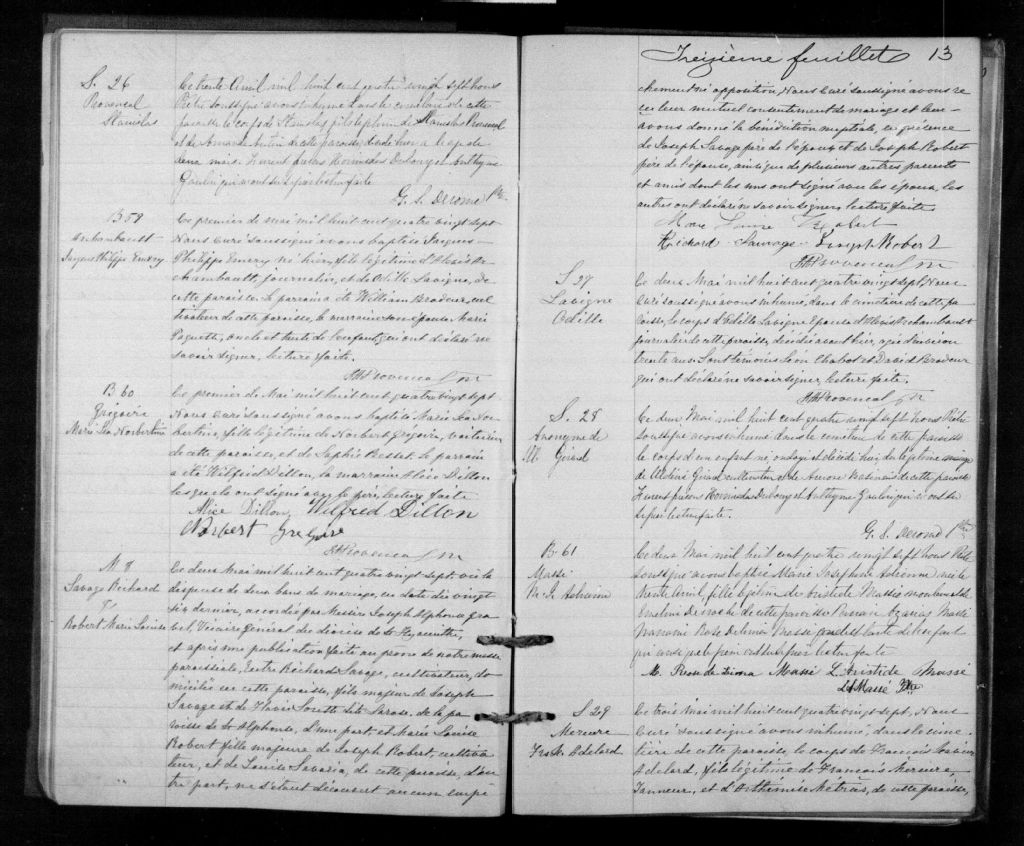 S. 26
Provencal
Stanislas
Le trente Avril mil huit cent quatre vingt sept Nous
Prêtre soussigné avons inhumé dans le cimetière de cette
paroisse le corps de Stanislas fils de Stanislas Provencal
et de de cette paroisse, décédé hier a l'age de
deux mois. Furent présents Hormisdas Dulong et Anthyme
Gaulin qui avant su signer lecture faite
G. S. Derome Ptre
B 59
Archambault
Jacques Philippe Emery
Le premier de Mai mil huit cent quatre vingt sept
Nous curé soussigné avons baptisé Jacques
Philippe Emery né hier, fils légitime d'Alexis Ar-
chambault, journalier, et de Odille Lavigne, de
cette paroisse. Le parrain a été William Brodeur, cul-
tivateur de cette paroisse, la marraine son épouse, Marie
Paquette, oncle et tante de l'enfant, qui ont déclaré ne
savoir signer, lecture faite.
J A Provencal Ptre
B 60
Grégoire
Marie Léa Norbertine
Le premier de Mai mil huit cent quatre vingt sept
Nous curé soussigné avons baptisé Marie Léa Nor-
bertine, fille légitime de Norbert Grégoire, voiturier
de cette paroisse, et de Sophie Besset. Le parrain
a été Wilfrid Dillon, la marraine Alice Dillon
lesquels ont signé avec le père, lecture faite
Alice Dillon, Wilfred Dillon
Norbert Gregoire
J A Provencal Ptre
M 8
Savage Richard
&
Robert Marie Louise
Le deux Mai mil huit cent quatre vingt sept, vu la
dispense de deux bans de mariage, en date du vingt
six dernier, accordée par Messire Joseph Alphonse Gra-
vel, Vicaire Général du diocèse de St Hyacinthe,
et après une publication faite au prone de notre messe
paroissiale, Entre Richard Savage, cultivateur, do-
micilié en cette paroisse, fils majeur de Joseph
Savage et de Flavie Goutte dite Larose, de la pa-
roisse de St Alphonse, d'une part et Marie Louise
Robert fille majeure de Joseph Robert, cultiva-
teur, et de Louise Savaria, de cette paroisse, d'au-
tre part, ne s'étant découvert aucun empê
Treizième feuillet 13
chement ni opposition, Nous Curé soussigné avons re-
çu leur mutuel consentement de mariage et leur
avons donné la bénédiction nuptiale, en présence
de Joseph Savage père de l'époux et de Joseph Robert
père de l'épouse, ainsi que de plusieurs autres parents
et amis dont les uns ont signé avec les époux, les
autres ont déclaré ne savoir signer, lecture faite.
Marie Louise Robert
Richard Sauvage Joseph Robert
J A Provencal Ptre
S 27
Lavigne
Odille
Le deux Mai mil huit cent quatre vingt sept, Nous
Curé soussigné avons inhumé, dans le cimetière de cette pa-
roisse, le corps d'Odille Lavigne Epouse d'Alexis Archambault
journalier de cette paroisse, décédée avant hier, agée d'environ
trente ans. Sont témoins Léon Chabot et David Brodeur
qui ont déclaré ne savoir signer, lecture faite.
J A Provencal Ptre
S. 28
Anonyme de
M. Girard
Le deux Mai mil huit cent quatre vingt sept Nous Prêtre
soussigné avons inhumé dans le cimetière de cette paroisse
le corps d'un enfant né ondoyé et décédé hier, du légitime mariage
de Girard cultivateur et de Aurore de cette paroisse
Furent présents Hormisdas Dulong et Anthyme Gaulin qui n'ont su
signer lecture faite.
G. S. Derome Ptre
B. 61
Massé
M. J. Adrienne
Le deux Mai mil huit cent quatre vingt sept Nous Ptre
soussigné avons baptisé Marie Josephine Adrienne née le
trente Avril, fille légitime de Aristide Massé et
de cette paroisse Parrain Ozarias Massé
Marraine Rose Delima Massé tante de l'enfant
qui avec le père ont su signer lecture faite
M. Rose de Lima Massé L. Aristide Massé
Massé Ptre
S. 29
Mercure
Frs X. Adelard
Le trois Mai mil huit cent quatre vingt sept, Nous
Curé soussigné avons inhumé, dans le cime-
tière de cette paroisse, le corps de François Xavier
Adelard, fils légitime de François Mercure,
Tanneur, et d'Arthémise Métras, de cette paroisse,